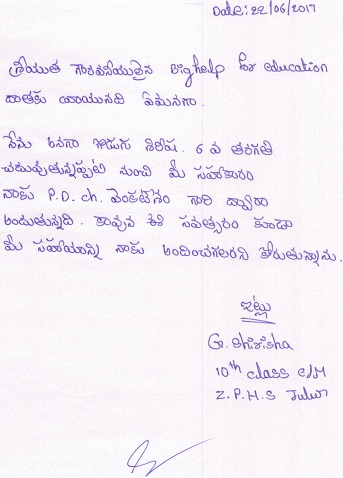 Date: 22/06/2017
శ్రీయుత గౌరవనీయులైన Big help for education
దాతకు వ్రాయునది ఏమనగా.
నేను అనగా గొడుగు శిరీష. 6 వ తరగతి
చదువుతున్నప్పటి నుంచి మీ సహకారం
నాకు P.D. ch. వెంకటేశం గారి ద్వారా
అందుతున్నది. కావున ఈ సవత్సరం కూడా
మీ సహాయాన్ని నాకు అందించగలరని కోరుతున్నాను.
ఇట్లు
G. Shirisha
10th class E/M
Z.P.H.S